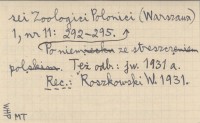 sei Zoologici Polonici (Warszawa)
1, nr 11: 292-295. ↑
Po niemiecku ze streszczeniem
polskim. Też odb.: jw. 1931 a.
Rec.: Roszkowski W. 1931.
WHP MT